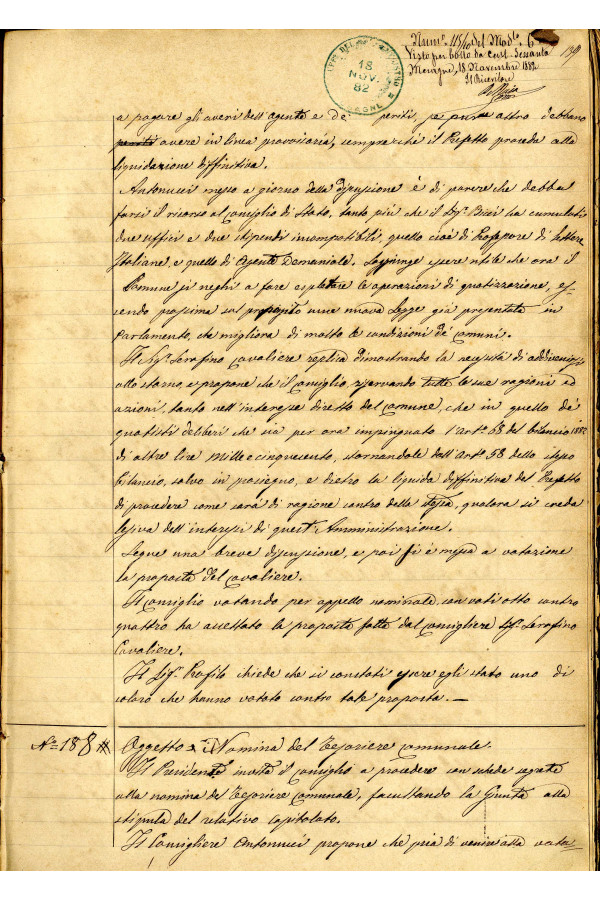 Num° 115/10 del Mod°. 6
Visto per bollo da Cent. Sessanta
Mesagne, 18 Novembre 1882
Il Ricevitore
139
18
NOV.
82
a pagare gli averi dell'agente e de' periti, se pure altro debbano
periti avere in linea provvisoria, sempreché il Prefetto proceda alla
liquidazione diffinitiva.
Antonucci messo a giorno della discussione è di parere che debba
farsi il ricorso al Consiglio di Stato, tanto più che il Sig. Ricci ha cumulati
due uffici e due stipendi incompatibili, quello cioè di Professore di lettere
Italiane, e quello di Agente Demaniale. Soggiunge essere utile che ora il
Comune si neghi a fare espletare le operazioni di quotizzazione, es-
sendo prossima sul proposito una nuova Legge già presentata in
Parlamento, che migliora di molto le condizioni de' Comuni.
Il Sigr. Serafino Cavaliere replica dimostrando la necessità di addivenirsi
allo storno, e propone che il Consiglio, riservando tutte le sue ragioni ed
azioni, tanto nell'interesse diretto del Comune, che in quello de'
quotisti deliberi che sia per ora impinguato l'arto. 68 del bilancio 1882
di altre lire mille cinquecento, stornandole dall'arto. 58 dello stesso
bilancio, salvo in prosieguo, e dietro la liquida diffinitiva del Prefetto
di procedere come sarà di ragione contro della stessa, qualora si creda
lesiva dell'interessi di quest'Amministrazione.
Segue una breve discussione, e poi si è messa a votazione
la proposta del Cavaliere.
Il Consiglio votando per appello nominale, con voti otto contro
quattro ha accettato la proposta fatta dal Consigliere Sigr. Serafino
Cavaliere.
Il Sigr. Profilo chiede che si constati essere egli stato uno di
coloro che hanno votato contro tale proposta. —
No. 188
Oggetto Nomina del Tesoriere Comunale.
Il Presidente invita il Consiglio a procedere con schede segrete
alla nomina del Tesoriere Comunale, facultando la Giunta alla
stipula del relativo capitolato.
Il Consigliere Antonucci propone che pria di venire alla vota-